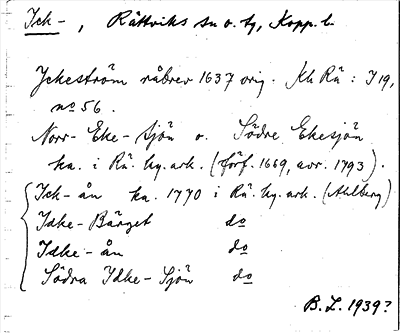 Ick-, Rättviks sn o. tg, Kopp. l.
Yckeström råbrev 1637 orig. KA Rä: I 19,
no 56.
Norr-Eke-Sjön o. Södre Ekesjön
ka. i Rä. ky. ark. (förf. 1669, avr. 1793).
Ick-ån ka. 1770 i Rä. ky. ark. (Ahlberg)
Idke-Bärget do
Idke-ån do
Södra Idke-Sjön do
B.L. 1939?